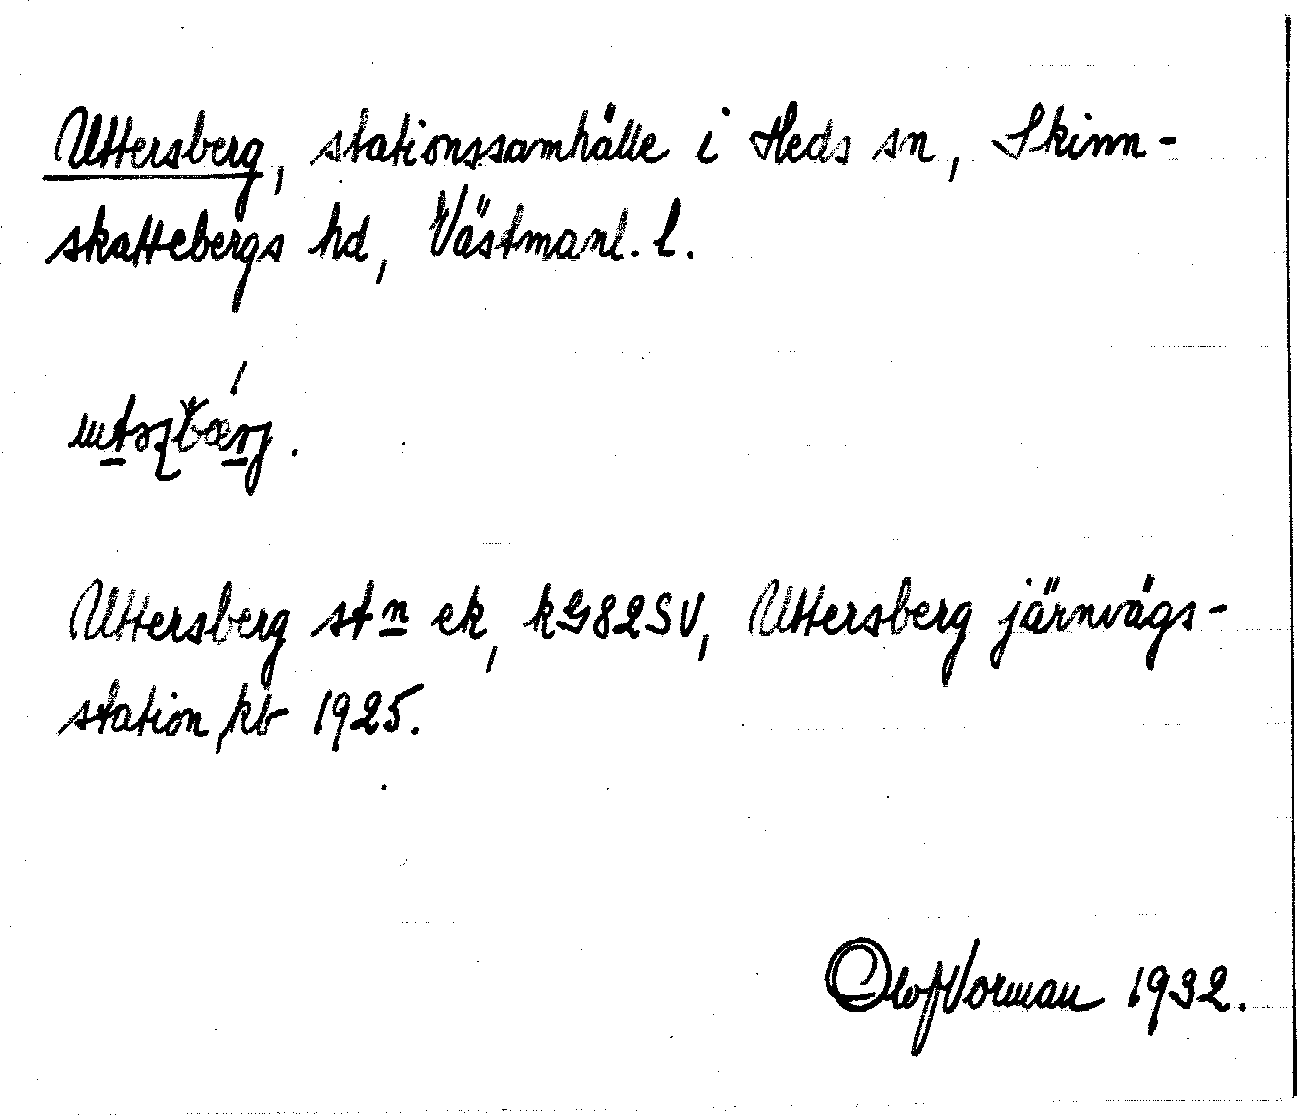 Uttersberg, stationssamhälle i Heds sn, Skinn-
skattebergs hd, Västmanl. l.
Uttersberg stn ek, kG82SV, Uttersberg järnvägs-
station kb 1925.
Olof Vorman 1932.